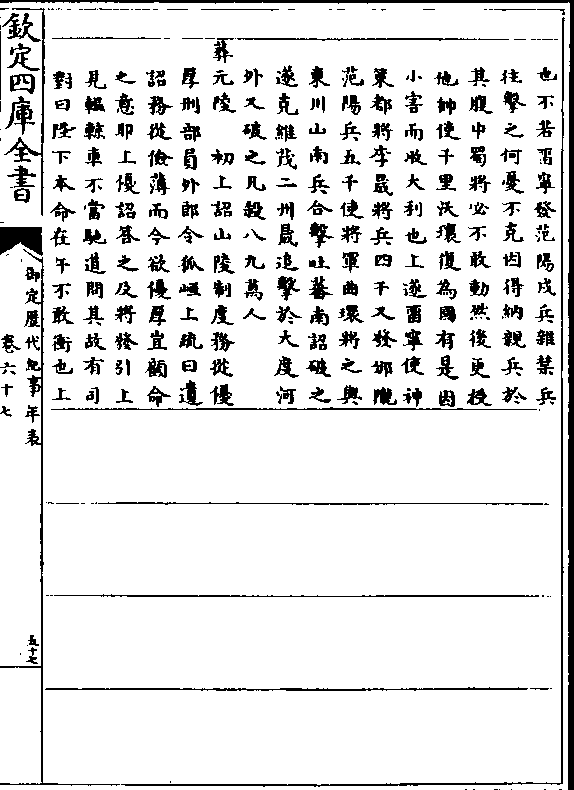 也不若畱寧發范陽戍兵雜禁兵
往擊之何憂不克因得納親兵於
其腹中蜀將必不敢動然後更授
他帥使千里沃壤復為國有是因
小害而收大利也上遂畱寧使神
策都將李晟將兵四千又發邠隴
范陽兵五千使將軍曲環將之與
東川山南兵合擊吐蕃南詔破之
遂克維茂二州晟追擊於大度河
外又破之凡殺八九萬人
葬元陵　初上詔山陵制度務從優
厚刑部員外郎令狐峘上疏曰遺
詔務從儉薄而今欲優厚豈顧命
之意耶上優詔答之及將發引上
見轀輬車不當馳道問其故有司
對曰陛下本命在午不敢衝也上
欽定四庫全書
御定歷代紀事年表
卷六十七
五十七